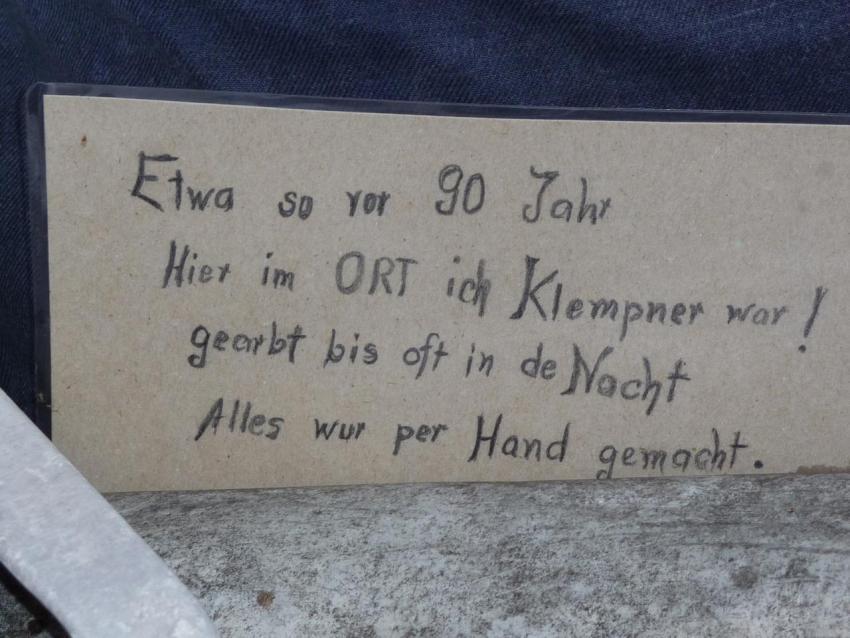 Etwa so vor 90 Jahr
Hier im ORT ich Klempner war!
gearbt bis oft in de Nacht
Alles wur per Hand gemacht.